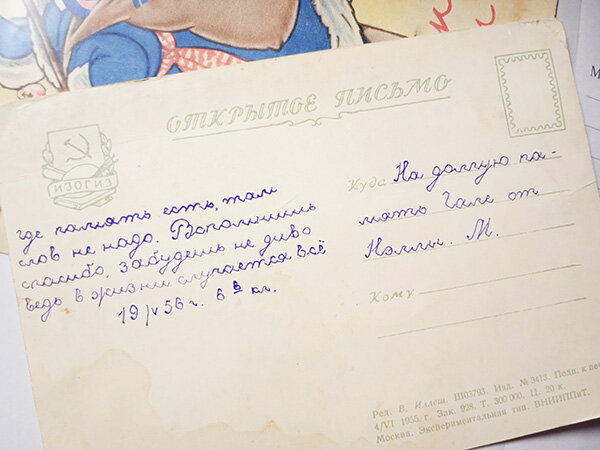 ОТКРЫТОЕ ПИСЬМО
ИЗОГИЗ
где память есть, там
слов не надо. Вспомнишь
спасибо, забудешь не диво
ведь в жизни случается всё
19/V 56 г. 6 в кл.
Куда На долгую па-
мять Гале от
Нэллы. М.
Кому
Ред. В. Иллеш. Ш03793. Изд. № 3413. Подп. к печ
4/VI 1955. г. Зак. 928. Т. 300 000. Ц. 20 к.
Москва. Экспериментальная тип. ВНИИППиТ.
М